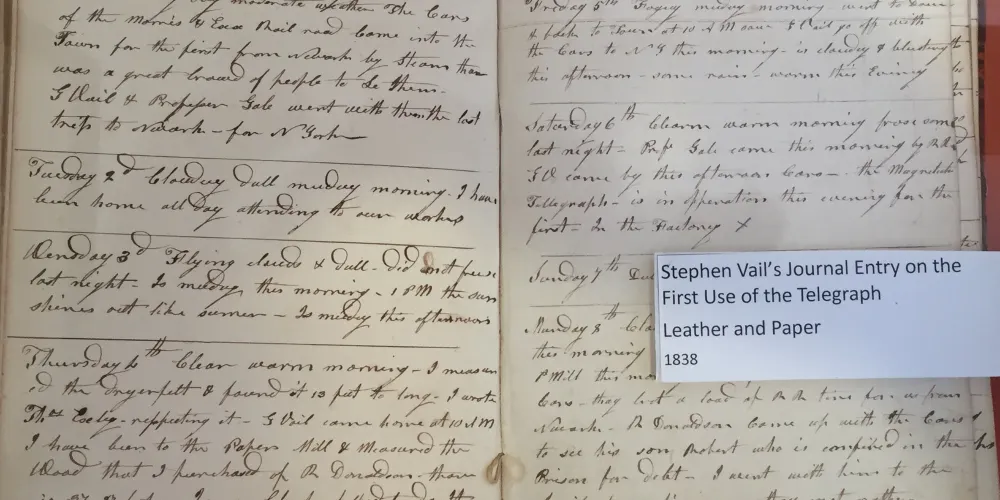 moderate weather The Cars
of the Morris & Essex Rail road Came into the
Town for the first from Newark by Steam thare
was a great Crowd of people to Se them -
G Vail & Profesper Gale went with them the last
trip to Newark - for N York
Tuesday 2d Cloudey dull muddey morning. I have
been home all day attending to our works
Wensday 3d Flying clouds & dull - did not freese
last night - Is muddey this morning - 1 PM the sun
shines out like sumer - Is muddey this afternoon
Thursday 4th Clear warm morning - I measur
ed the dryerfelt & found it 13 feet to long - I wrote
Thos respecting it - G Vail came home at 10 AM
I have been to the Paper Mill & Measured the
Wood that I purchased of R Donaldson - thare
Friday 5th Fogey mudey morning went to
& back to Town at 10 AM saw G Vail go off with
the Cars to N Y this morning - is cloudey &
this afternoon - some rain - worm this Evening
Saturday 6th Clearm warm morning frose some
last night - Profr Gale came this morning by R R
G V came by this afternoon Cars - the Magnetick
Telegraph - is in opperation this evening for the
first - In the Factorey X
Sunday 7th
Munday 8
this morning
P Mill this mo
Cars - they lost a load of R R
Newark - R Donaldson Came up with the Cars
to see his son Robert who is confined in the
Prison for debt - I went with him to the
Stephen Vail's Journal Entry on the
First Use of the Telegraph
Leather and Paper
1838